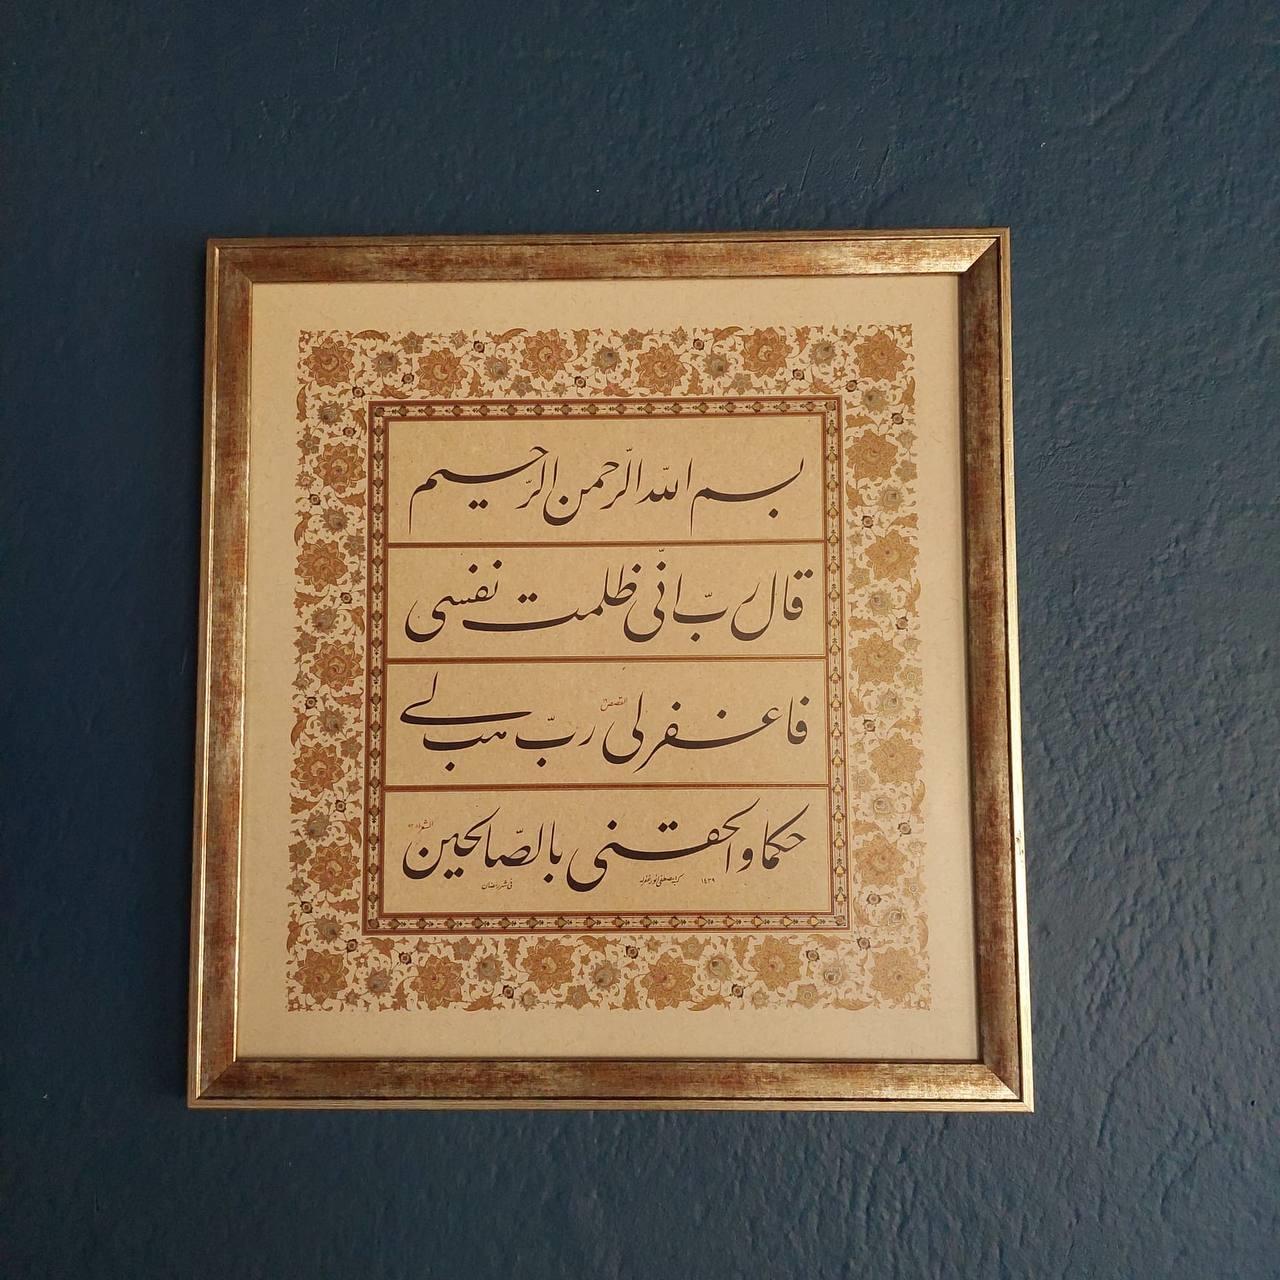 بسم الله الرّحمن الرّحيم
قال ربّ انّى ظلمت نفسى
فاغفرلى القصص ربّ هب لى
حكما والحقنى بالصّالحين الشعراء ٨٣
١٤٣٩ فى شهر رمضان